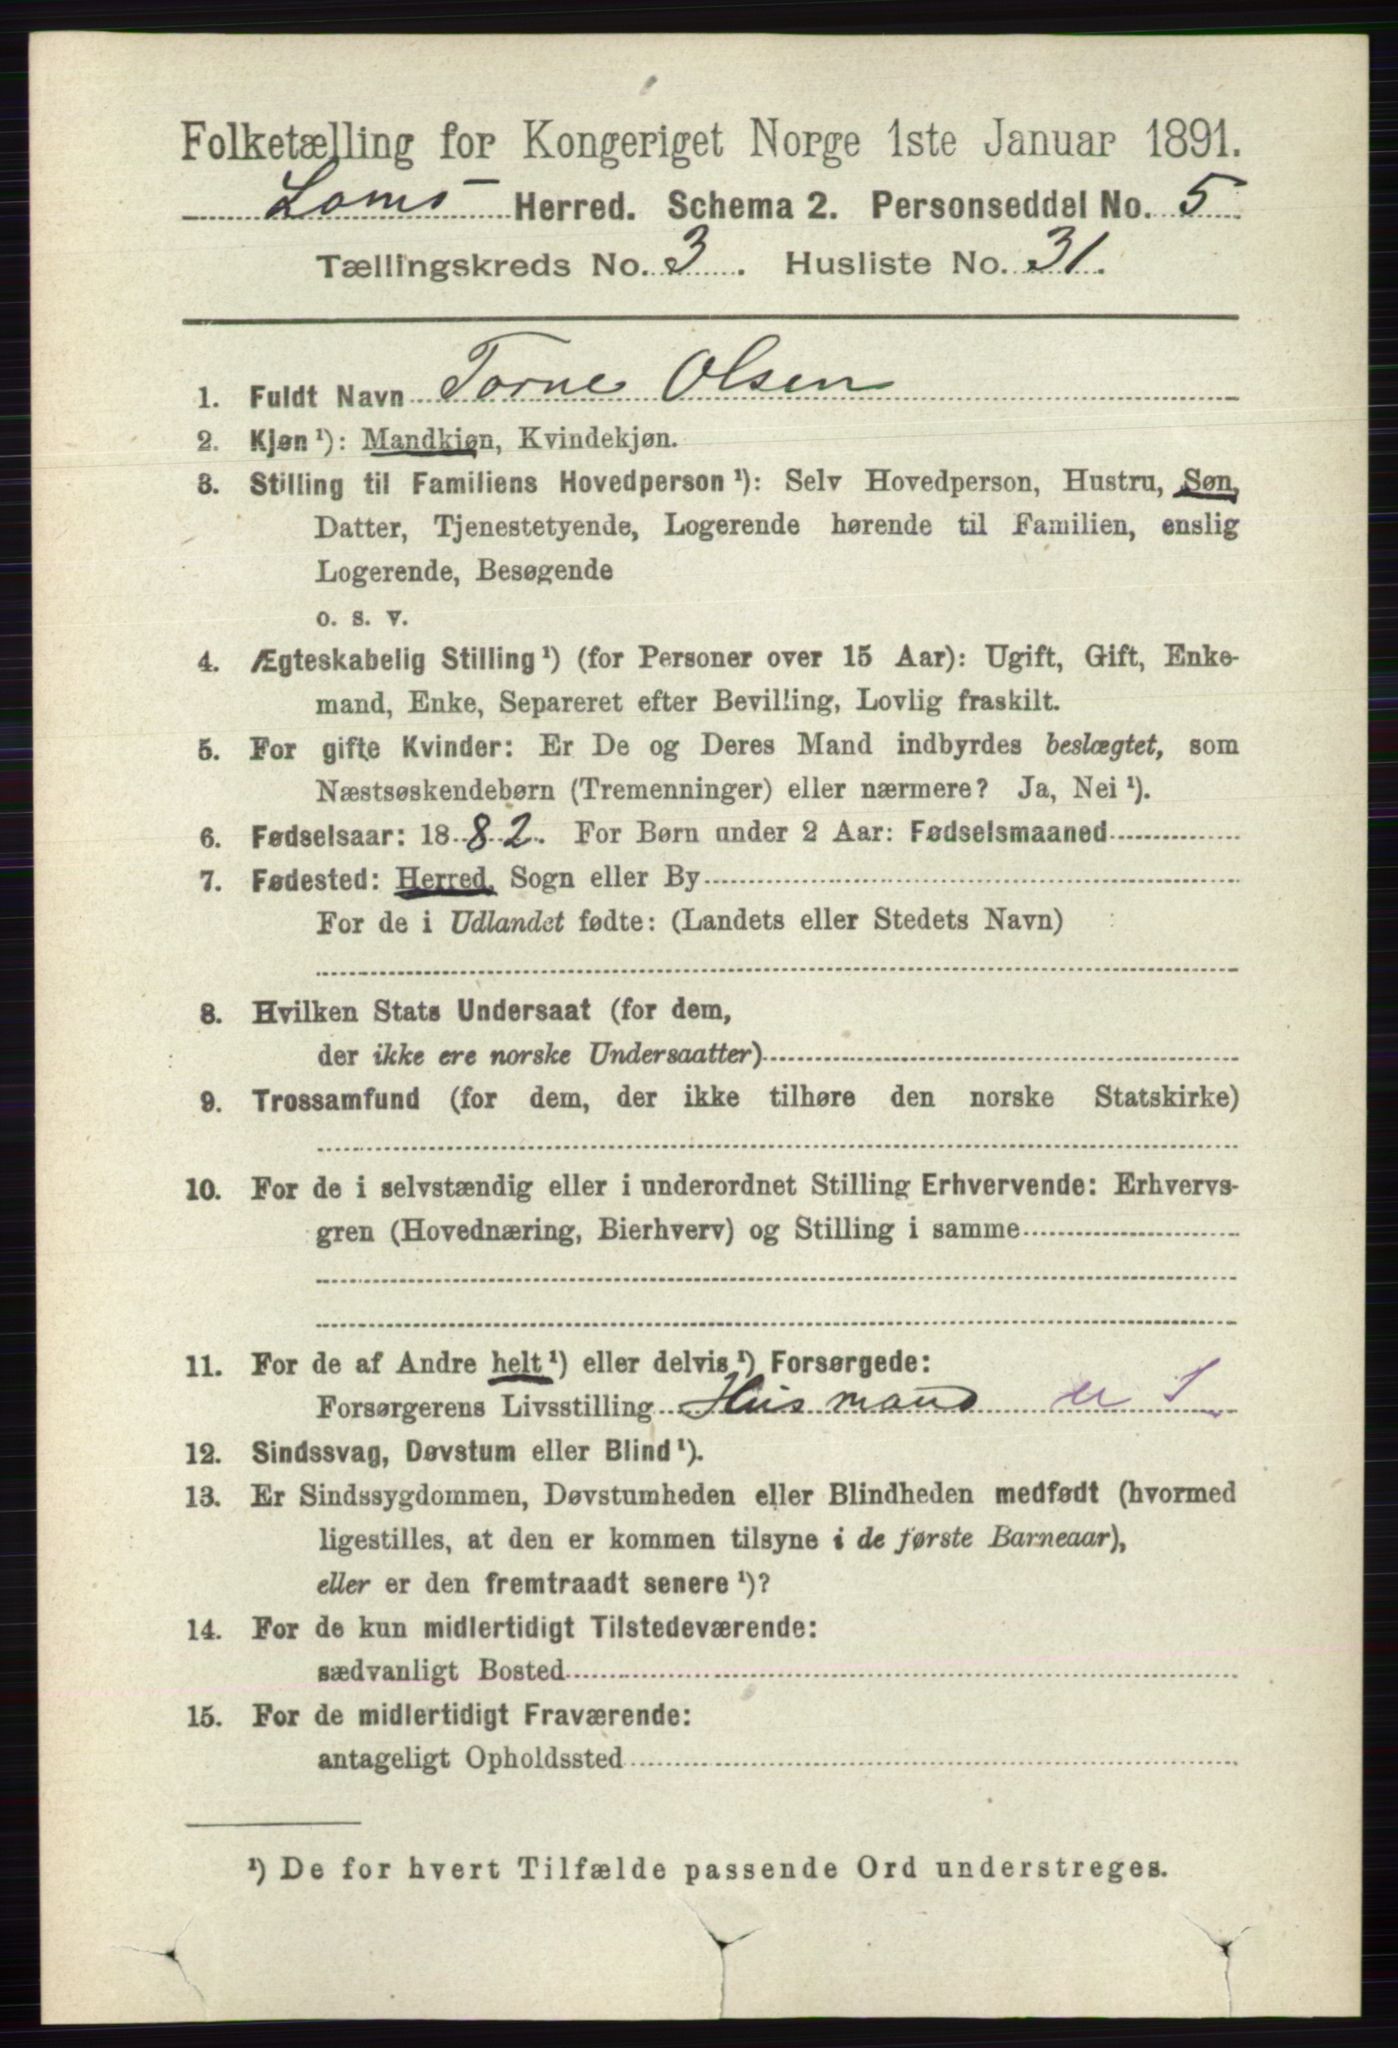 Folketælling for Kongeriget Norge 1ste Januar 1891.
Loms Herred. Schema 2. Personseddel No. 5
Tællingskreds No. 3. Husliste No. 31.
1. Fuldt Navn Torne Olsen
2. Kjøn ¹): Mandkjøn, Kvindekjøn.
3. Stilling til Familiens Hovedperson ¹): Selv Hovedperson, Hustru, Søn,
Datter, Tjenestetyende, Logerende hørende til Familien, enslig
Logerende, Besøgende
o. s. v.
4. Ægteskabelig Stilling ¹) (for Personer over 15 Aar): Ugift, Gift, Enke-
mand, Enke, Separeret efter Bevilling, Lovlig fraskilt.
5. For gifte Kvinder: Er De og Deres Mand indbyrdes beslægtet, som
Næstsøskendebørn (Tremenninger) eller nærmere? Ja, Nei ¹).
6. Fødselsaar: 1882. For Børn under 2 Aar: Fødselsmaaned
7. Fødested: Herred, Sogn eller By
For de i Udlandet fødte: (Landets eller Stedets Navn)
8. Hvilken Stats Undersaat (for dem,
der ikke ere norske Undersaatter)
9. Trossamfund (for dem, der ikke tilhøre den norske Statskirke)
10. For de i selvstændig eller i underordnet Stilling Erhvervende: Erhvervs-
gren (Hovednæring, Bierhverv) og Stilling i samme
11. For de af Andre helt ¹) eller delvis ¹) Forsørgede:
Forsørgerens Livsstilling Husmand
12. Sindssvag, Døvstum eller Blind ¹).
13. Er Sindssygdommen, Døvstumheden eller Blindheden medfødt (hvormed
ligestilles, at den er kommen tilsyne i de første Barneaar),
eller er den fremtraadt senere ¹)?
14. For de kun midlertidigt Tilstedeværende:
sædvanligt Bosted
15. For de midlertidigt Fraværende:
antageligt Opholdssted
¹) De for hvert Tilfælde passende Ord understreges.